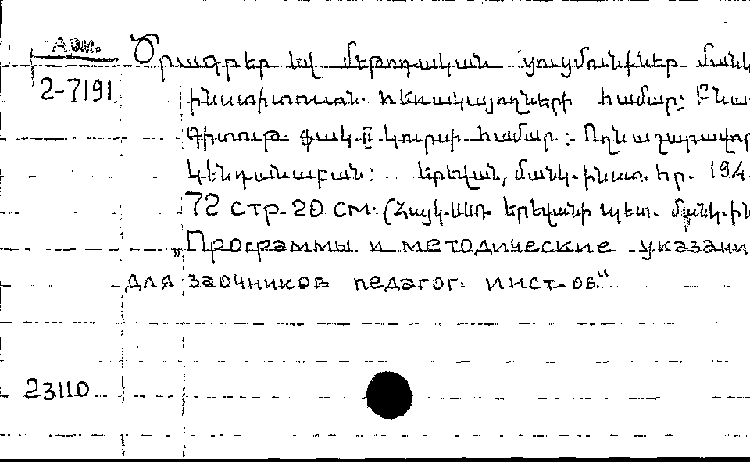 Арм.
2-7191
Ծրագրեր եվ մեթոդական ցուցմունքներ մանկ
ինստիտուտն. հեռակայողների համար: Բնա
Գիտութ. ֆակ. II կուրսի համար: Ողնաշարավոր
կենդանաբան: Երեվան, մանկ. ինստ. հր. 194
72 стр. 20 см. (Հայկ. ՍՍՌ. Երեվանի պետ. մանկ. ին
„Программы и методические указани
для заочников педагог. инст-ов."
23110